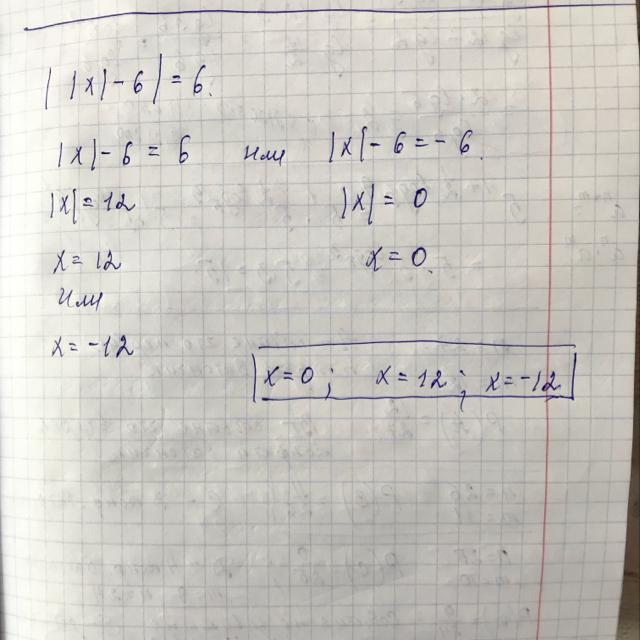 | |x| - 6 | = 6.
|x| - 6 = 6 или |x| - 6 = - 6.
|x| = 12 |x| = 0
x = 12 x = 0.
Или
x = -12
x = 0 ; x = 12 ; x = -12